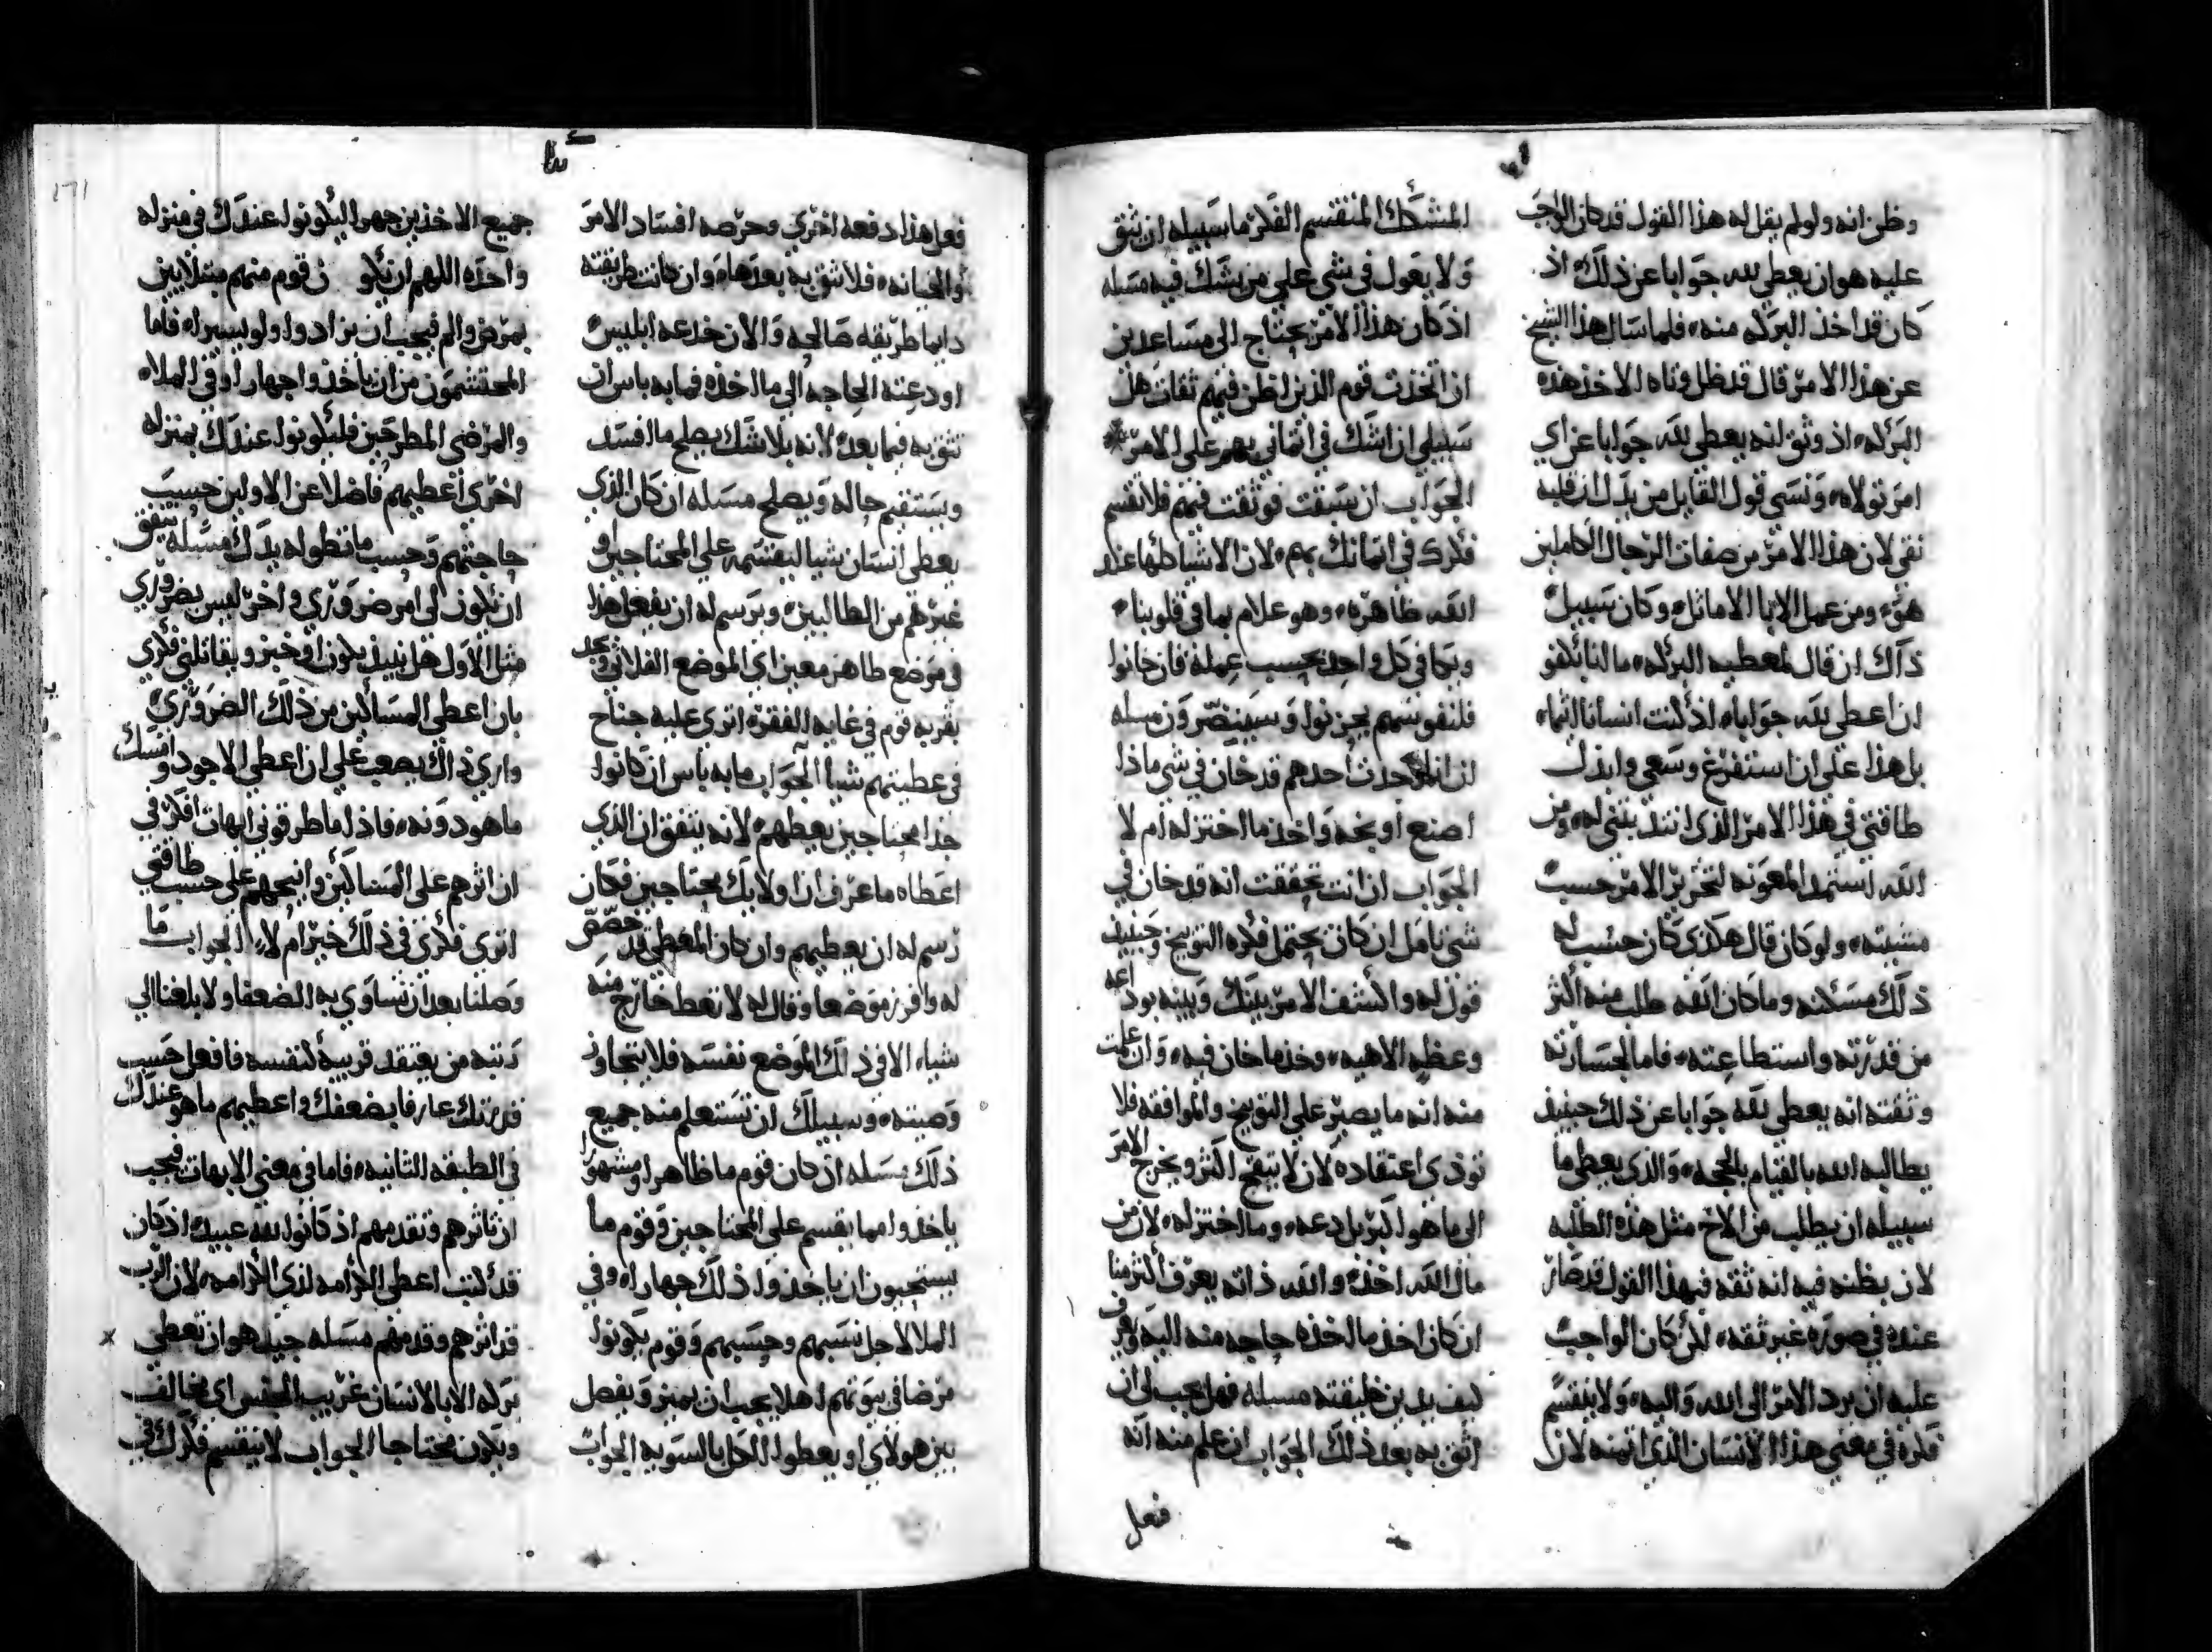 وظن انه ولو لم يقل له هذا القول قد كان الواجب
عليه هو ان يعطي لله جوابا عن ذلك اذ
كان قد اخذ البركه منه فلما سال هذا الشيخ
عن هذا الامر قال قد ظل وتاه الاخذ هذه
البركه اذ وثق انه يعطي لله جوابا عن اي
امر تولاه ونسى قول القايل من بدل ان قلبه
نقي لان هذا الامر من صفات الرجال الكاملين
هو ومن عمل الابا الاماثل وكان سبيل
ذاك ان قال لمعطيه البركه ما لنا نكفو
ان اعطي لله جوابا اذ كنت انسانا اثيما
بل هذا علي ان استفرغ وسعي وابذل
طاقتي في هذا الامر الذي انتدبتني له ومن
الله استمد المعونه لتحرير الامر حسب
مشيته ولو كان قال هكذى كان حسب له
ذلك مسكنه وما كان الله طلب منه اكثر
من قدرته واستطاعته فاما لجسارته
وثقته انه يعطي لله جوابا عن ذلك حينيذ
يطالبه الله بالقيام بالحجه والذي يعطي ما
سبيله ان يطلب من الاخ مثل هذه الطلبه
لان يظنه فيه انه ثقه فبهذا القول قد صار
عنده في صوره غير ثقه لكن كان الواجب
عليه ان يرد الامر الى الله واليه ولا ينقسم
فكره في معني هذا الانسان الذي اتمنه لان
المتشكك المنقسم الفكر ما سبيله ان يثق
ولا يعول في شي علي من يشك فيه مسله
اذ كان هذا الامر يحتاج الى مساعدين
ان اتخذت قوم الذين اظن فيهم ثقات هل
سبيلي ان اشك في ائتماني بهم علي الامر
الجواب ان سبقت فوثقت فيهم فلا تقسم
فكرك في اتمانك بهم لان الاشيا كلها عند
الله ظاهره وهو علام بما في قلوبنا
ويكافي كل واحد بحسب عمله فان خانوا
فلنفوسهم يحزنوا وسينضرون مسله
ان حدث احدهم قد خان في شي ماذا
اصنع اوبخه واخذ ما اختزله ام لا
الجواب ان انت تحققت انه قد خان في
شي تامل ان كان يحتمل فكره التوبيخ وحينيذ
قول له واكشف الامر بينك وبينه بوداعه
وعظه الاهيه وخذ ما خان فيه وان علمت
منه انه ما يصبر علي التوبيخ والموافقه فلا
توذي اعتقاده لان لا يتقح اكثر ويخرج الامر
الى ما هو اكبر بل دعه وما اختزله لان من
مال الله اخذ والله ذاته يعرف اكثر منا
ان كان اخذ ما اخذه حاجه منه اليه ويعرف
كيف يدين خليقته مسله فهل يجب لي ان
اثق به بعد ذلك الجواب ان علم منه انه
فعل
فعل هذا دفعه اخري وحرصه افساد الامر
والخيانه فلا تثق به بعدها وان كانت طريقته
دايما طريقه صالحه والان خدعه ابليس
او دعته الحاجه الي ما اخذه فما به باس ان
تثق به فيما بعد لانه بلا شك يصلح ما افسد
ويستقيم حاله ويصلح مسله ان كان الذي
يعطي انسان شيا ليقسمه علي المحتاجين او
غيرهم من الطالبين ويرسم له ان يفعل هذا
في موضع ظاهر معين اي الموضع الفلاني وتجد
بقربه قوم في غايه الفقر اترى عليه جناح
في عطيتهم شيا الجواب ما به باس ان كانوا
جدا محتاجين يعطهم لانه يتفق ان الذي
اعطاه ما عرف ان اولايك محتاجين فكان
رسم له ان يعطيهم وان كان المعطي قد خصص
له وافرز موضعا وقال له لا تعط خارج منه
شيا الا في ذلك الموضع نفسه فلا يتجاوز
وصيته وسبيلك ان تستعلم منه جميع
ذلك مسله ان كان قوم ما ظاهرا ومشهورا
ياخذوا مما يقسم علي المحتاجين وقوم ما
يستحيون ان ياخذوا ذلك جهارا وفي
الملا لاجل نسبهم وحسبهم وقوم يكونوا
مرضا في بيوتهم اهل يجب ان يميز ويفصل
بين هولاي او يعطوا الكل بالسويه الجواب
جميع الاخذين جهرا ليكونوا عندك في منزله
واحده اللهم ان يكون قوم منهم مبتلايين
بمرض والم فيجب ان يزادوا ولو يسيرا فاما
المحتشمون من ان ياخذوا جهارا وفي الملا
والمرضى المطرحين فليكونوا عندك بمنزله
اخري اعطيهم فاضلا عن الاولين حسب
حاجتهم وحسب ما تطوله يدك مسله يتفق
ان تكون لي امر ضروري واخر ليس بضروري
مثل الاول هل نبيذ يكون او خبز ويقاتلني فكري
بان اعطي المساكين من ذلك الضروري
واري ذاك يصعب علي ان اعطي الاجود وامسك
ما هو دونه فاذا ما طرقوني ابهات افكر في
ان اثرهم على المساكين وانيحهم علي حسب طاقتي
اترى فكري في ذلك خير ام لا الجواب ما
وصلنا بعد ان نساوي به الضعفا ولا بلغنا الي
رتبه من يعتقد قريبه كنفسه فافعل حسب
قدرتك عارفا بضعفك واعطيهم ما هو عندك
في الطبقه الثانيه فاما في معني الابهات فيجب
ان تاثرهم وتقدمهم اذ كانوا لله عبيد اذ كان
قد كتب اعطي الكرامه لذي الكرامه لان الرب
قد اثرهم وقدمهم مسله جيد هو ان تعطي
بركه الابا لانسان غريب الجنس اي مخالف
ويكون محتاجا الجواب لا ينقسم فكرك في